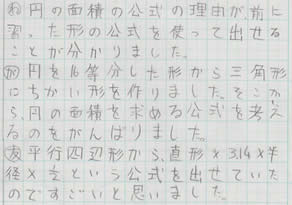 ㋻円の面積の公式の理由が、前に
習った形の公式を使って出せる
ことが分かりました。
㋕円を16等分した形から三角形
にちかい形を作りました。そこか
ら、円の面積を求める公式を考え
るのをがんばりました。
㊛平行四辺形から、直形×3.14×半
径×½という公式を出せていた
のですごいと思いました。